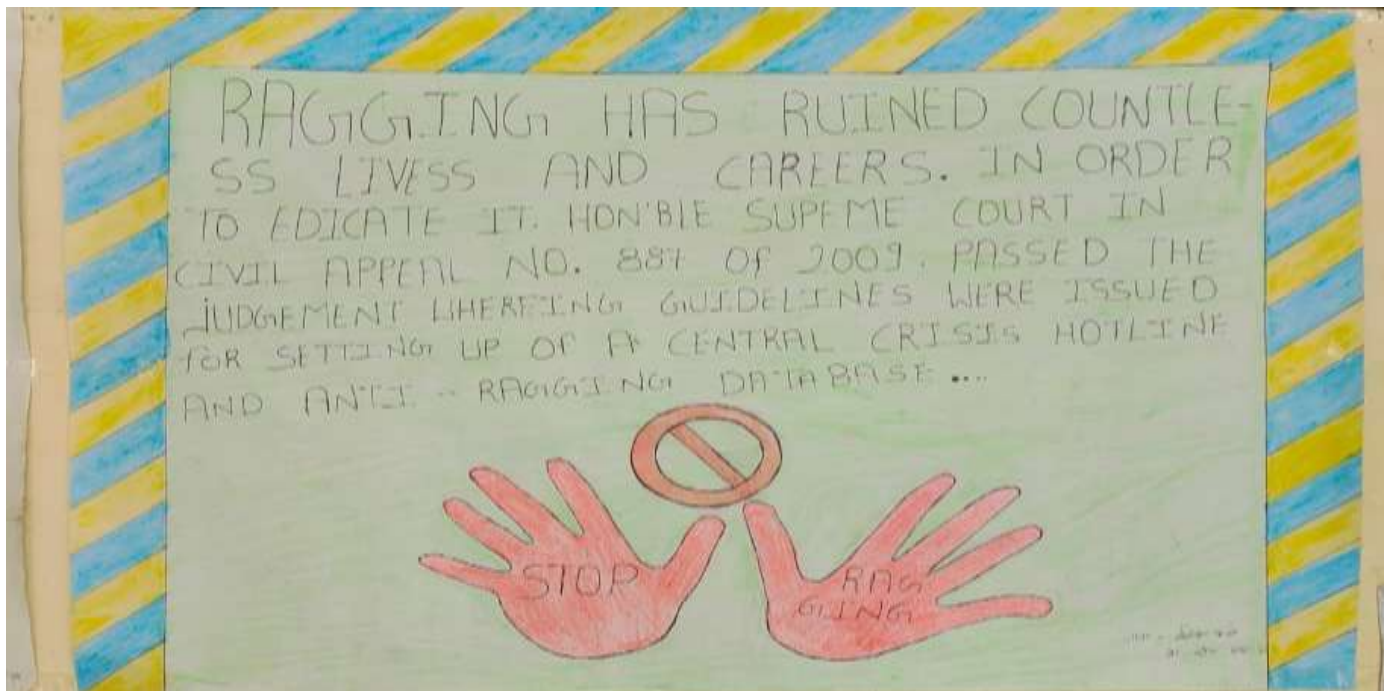 RAGGING HAS RUINED COUNTLE-
SS LIVESS AND CAREERS. IN ORDER
TO EDICATE IT. HON'BLE SUPEME COURT IN
CIVIL APPEAL NO. 887 OF 2009. PASSED THE
JUDGEMENT WHEREING GUIDELINES WERE ISSUED
FOR SETTING UP OF A CENTRAL CRISIS HOTLINE
AND ANTI - RAGGING DATABASE ....
STOP
RAG
GING